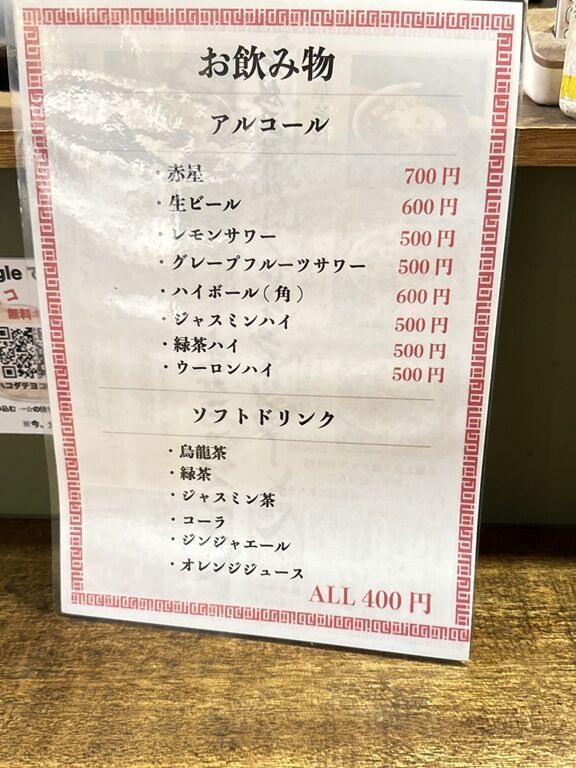 お飲み物
アルコール
・赤星 700円
・生ビール 600円
・レモンサワー 500円
・グレープフルーツサワー 500円
・ハイボール(角) 600円
・ジャスミンハイ 500円
・緑茶ハイ 500円
・ウーロンハイ 500円
ソフトドリンク
・烏龍茶
・緑茶
・ジャスミン茶
・コーラ
・ジンジャエール
・オレンジジュース
ALL 400円
gleで
コ
無料
ハコダテヨコ
※今、